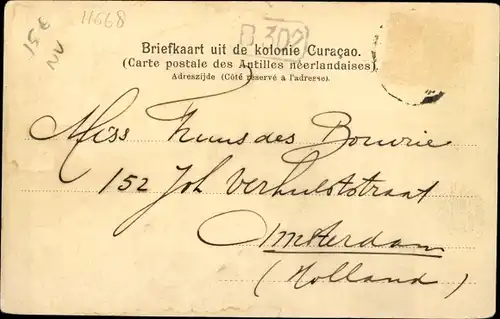 15€
NV
11668
B 302
Briefkaart uit de kolonie Curaçao.
(Carte postale des Antilles néerlandaises).
Adreszijde (Côté réservé à l'adresse).
Miss des Bouvrie
152 Joh Verhulststraat
Amsterdam
(Holland)